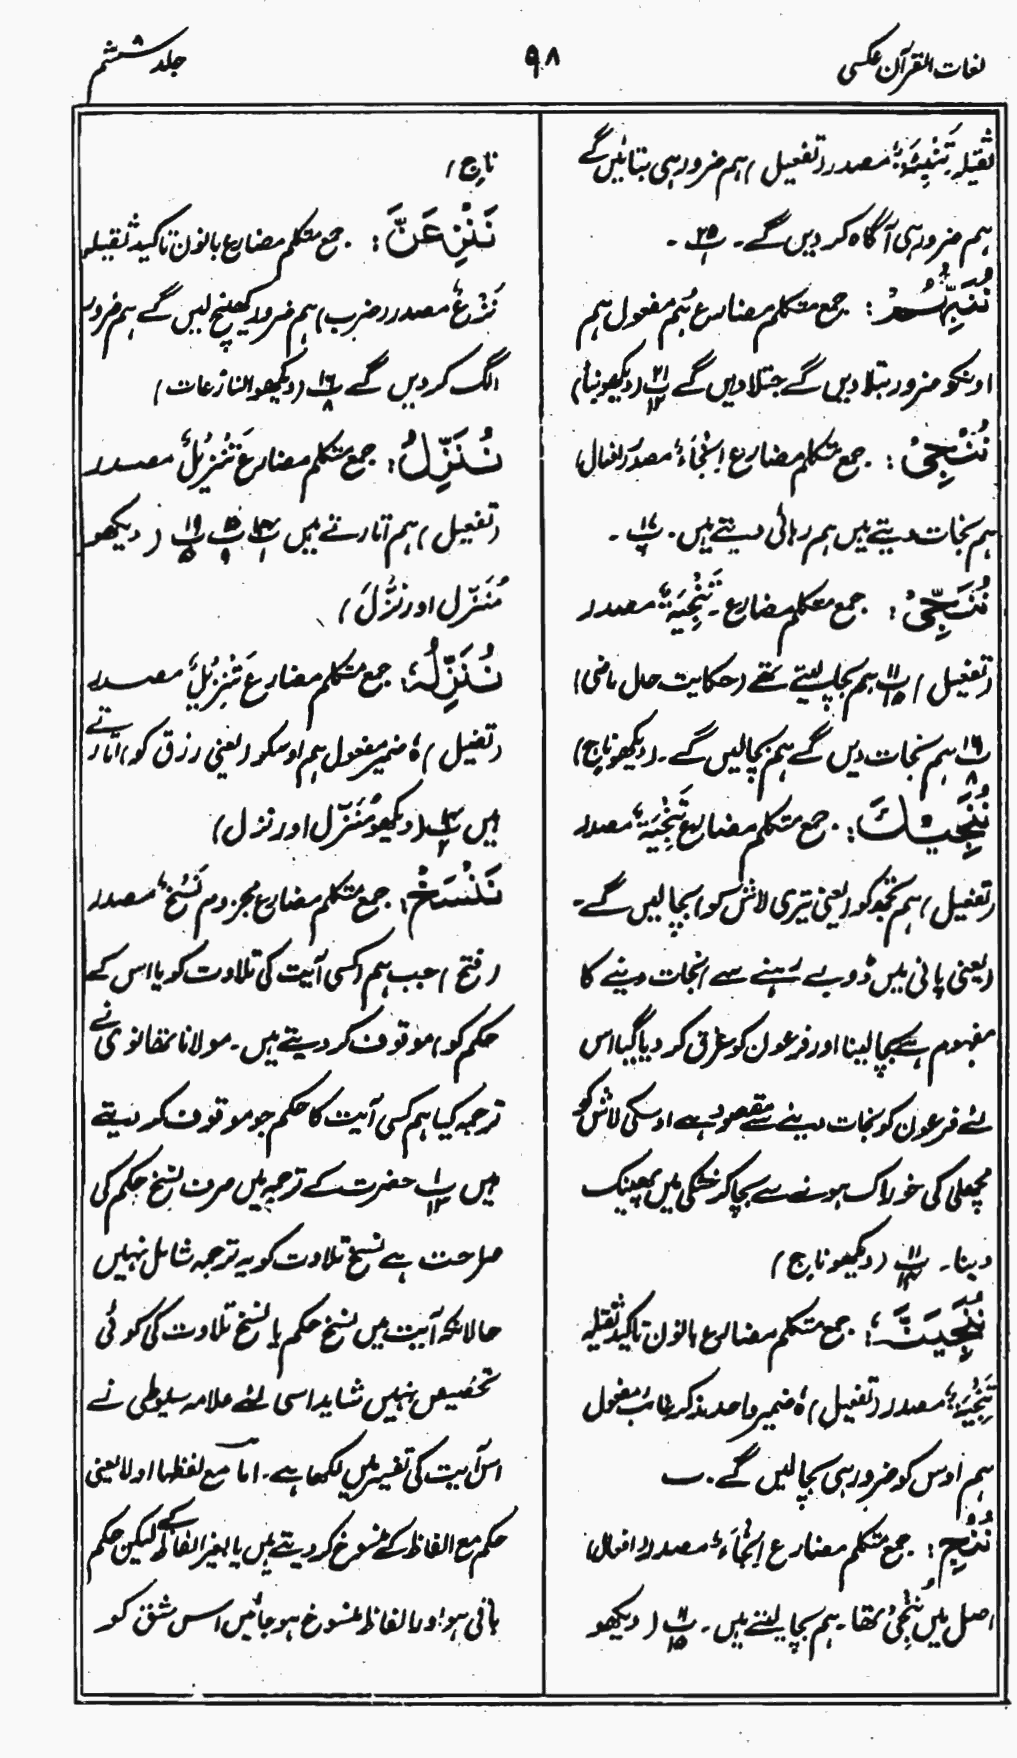 لغات القرآن عکسی
۹۸
جلد ششم
ثقیلہ تَنْبِئَۃٌ مصدر (تفعیل) ہم ضرور ہی بتائیں گے
ہم ضرور ہی آگاہ کر دیں گے۔ پ ۲۵
نُنَبِّئُهُمْ: جمع متکلم مضارع ہُم مفعول ہم
اونکو ضرور بتلا دیں گے جتلا دیں گے پ ۲۱ ۱۲ (دیکھو نبأ)
نُنْجِیْ: جمع متکلم مضارع اِنْجَاءٌ مصدر (افعال)
ہم نجات دیتے ہیں ہم رہائی دیتے ہیں۔ پ ۱۷
نُنَجِّیْ: جمع متکلم مضارع۔ تَنْجِیَۃٌ مصدر
(تفعیل) پ ۱۱ ۱۵ ہم بچا لیتے تھے (حکایت حال ماضی)
پ ۱۶ ۸ ہم نجات دیں گے ہم بچا لیں گے۔ (دیکھو ناجٍ)
نُنَجِّیْكَ: جمع متکلم مضارع تَنْجِیَۃٌ مصدر
(تفعیل) ہم تجھ کو (یعنی تیری لاش کو) بچا لیں گے۔
(یعنی پانی میں ڈوبے رہنے سے) نجات دینے کا
مفہوم ہے بچا لینا اور فرعون کو غرق کر دیا گیا اس
لئے فرعون کو نجات دینے سے مقصود ہے اوسکی لاش کو
مچھلی کی خوراک ہونے سے بچا کر خشکی میں پھینک
دینا۔ پ ۱۱ ۱۴ (دیکھو ناجٍ)
نُنَجِّیَنَّهٗ: جمع متکلم مضارع بانون تاکید ثقیلہ
تَنْجِیَۃٌ مصدر (تفعیل) ہٗ ضمیر واحد مذکر غائب مفعول
ہم اوس کو ضرور ہی بچا لیں گے۔ پ
نُنْجِ: جمع متکلم مضارع اِنْجَاءٌ مصدر (افعال)
اصل میں نُنْجِیْ تھا۔ ہم بچا لیتے ہیں۔ پ ۱۱ ۱۵ (دیکھو
ناجٍ)
نَنْزِعَنَّ: جمع متکلم مضارع بانون تاکید ثقیلہ
نَزْعٌ مصدر (ضرب) ہم ضرور کھینچ لیں گے ہم ضرور
الگ کر دیں گے پ ۱۶ ۸ (دیکھو النازعات)
نُنَزِّلُ: جمع متکلم مضارع تَنْزِیْلٌ مصدر
(تفعیل) ہم اتارتے ہیں پ ۱۴ ۱ پ ۱۵ ۹ پ ۱۹ ۵ (دیکھو
مُنَزَّل اور نَزَّلَ)
نُنَزِّلُهٗ: جمع متکلم مضارع تَنْزِیْلٌ مصدر
(تفعیل) ہٗ ضمیر مفعول ہم اوسکو (یعنی رزق کو) اتارتے
ہیں پ ۱۴ ۲ (دیکھو مُنَزَّل اور نزل)
نَنْسَخْ: جمع متکلم مضارع مجزوم نَسْخٌ مصدر
(فتح) جب ہم (کسی آیت کی تلاوت کو یا اس کے
حکم کو) موقوف کر دیتے ہیں۔ مولانا تھانوی نے
ترجمہ کیا ہم کسی آیت کا حکم جو موقوف کر دیتے
ہیں پ ۱ ۱۳ حضرت کے ترجمہ میں صرف نسخ حکم کی
صراحت ہے نسخ تلاوت کو یہ ترجمہ شامل نہیں
حالانکہ آیت میں نسخ حکم یا نسخ تلاوت کی کوئی
تخصیص نہیں شاید اسی لئے علامہ سیوطی نے
اس آیت کی تفسیر میں لکھا ہے۔ اما مع لفظہا او لا یعنی
حکم مع الفاظ کے منسوخ کر دیتے ہیں یا بغیر الفاظ کے لیکن حکم
باقی ہو اور الفاظ منسوخ ہو جائیں اس شق کو